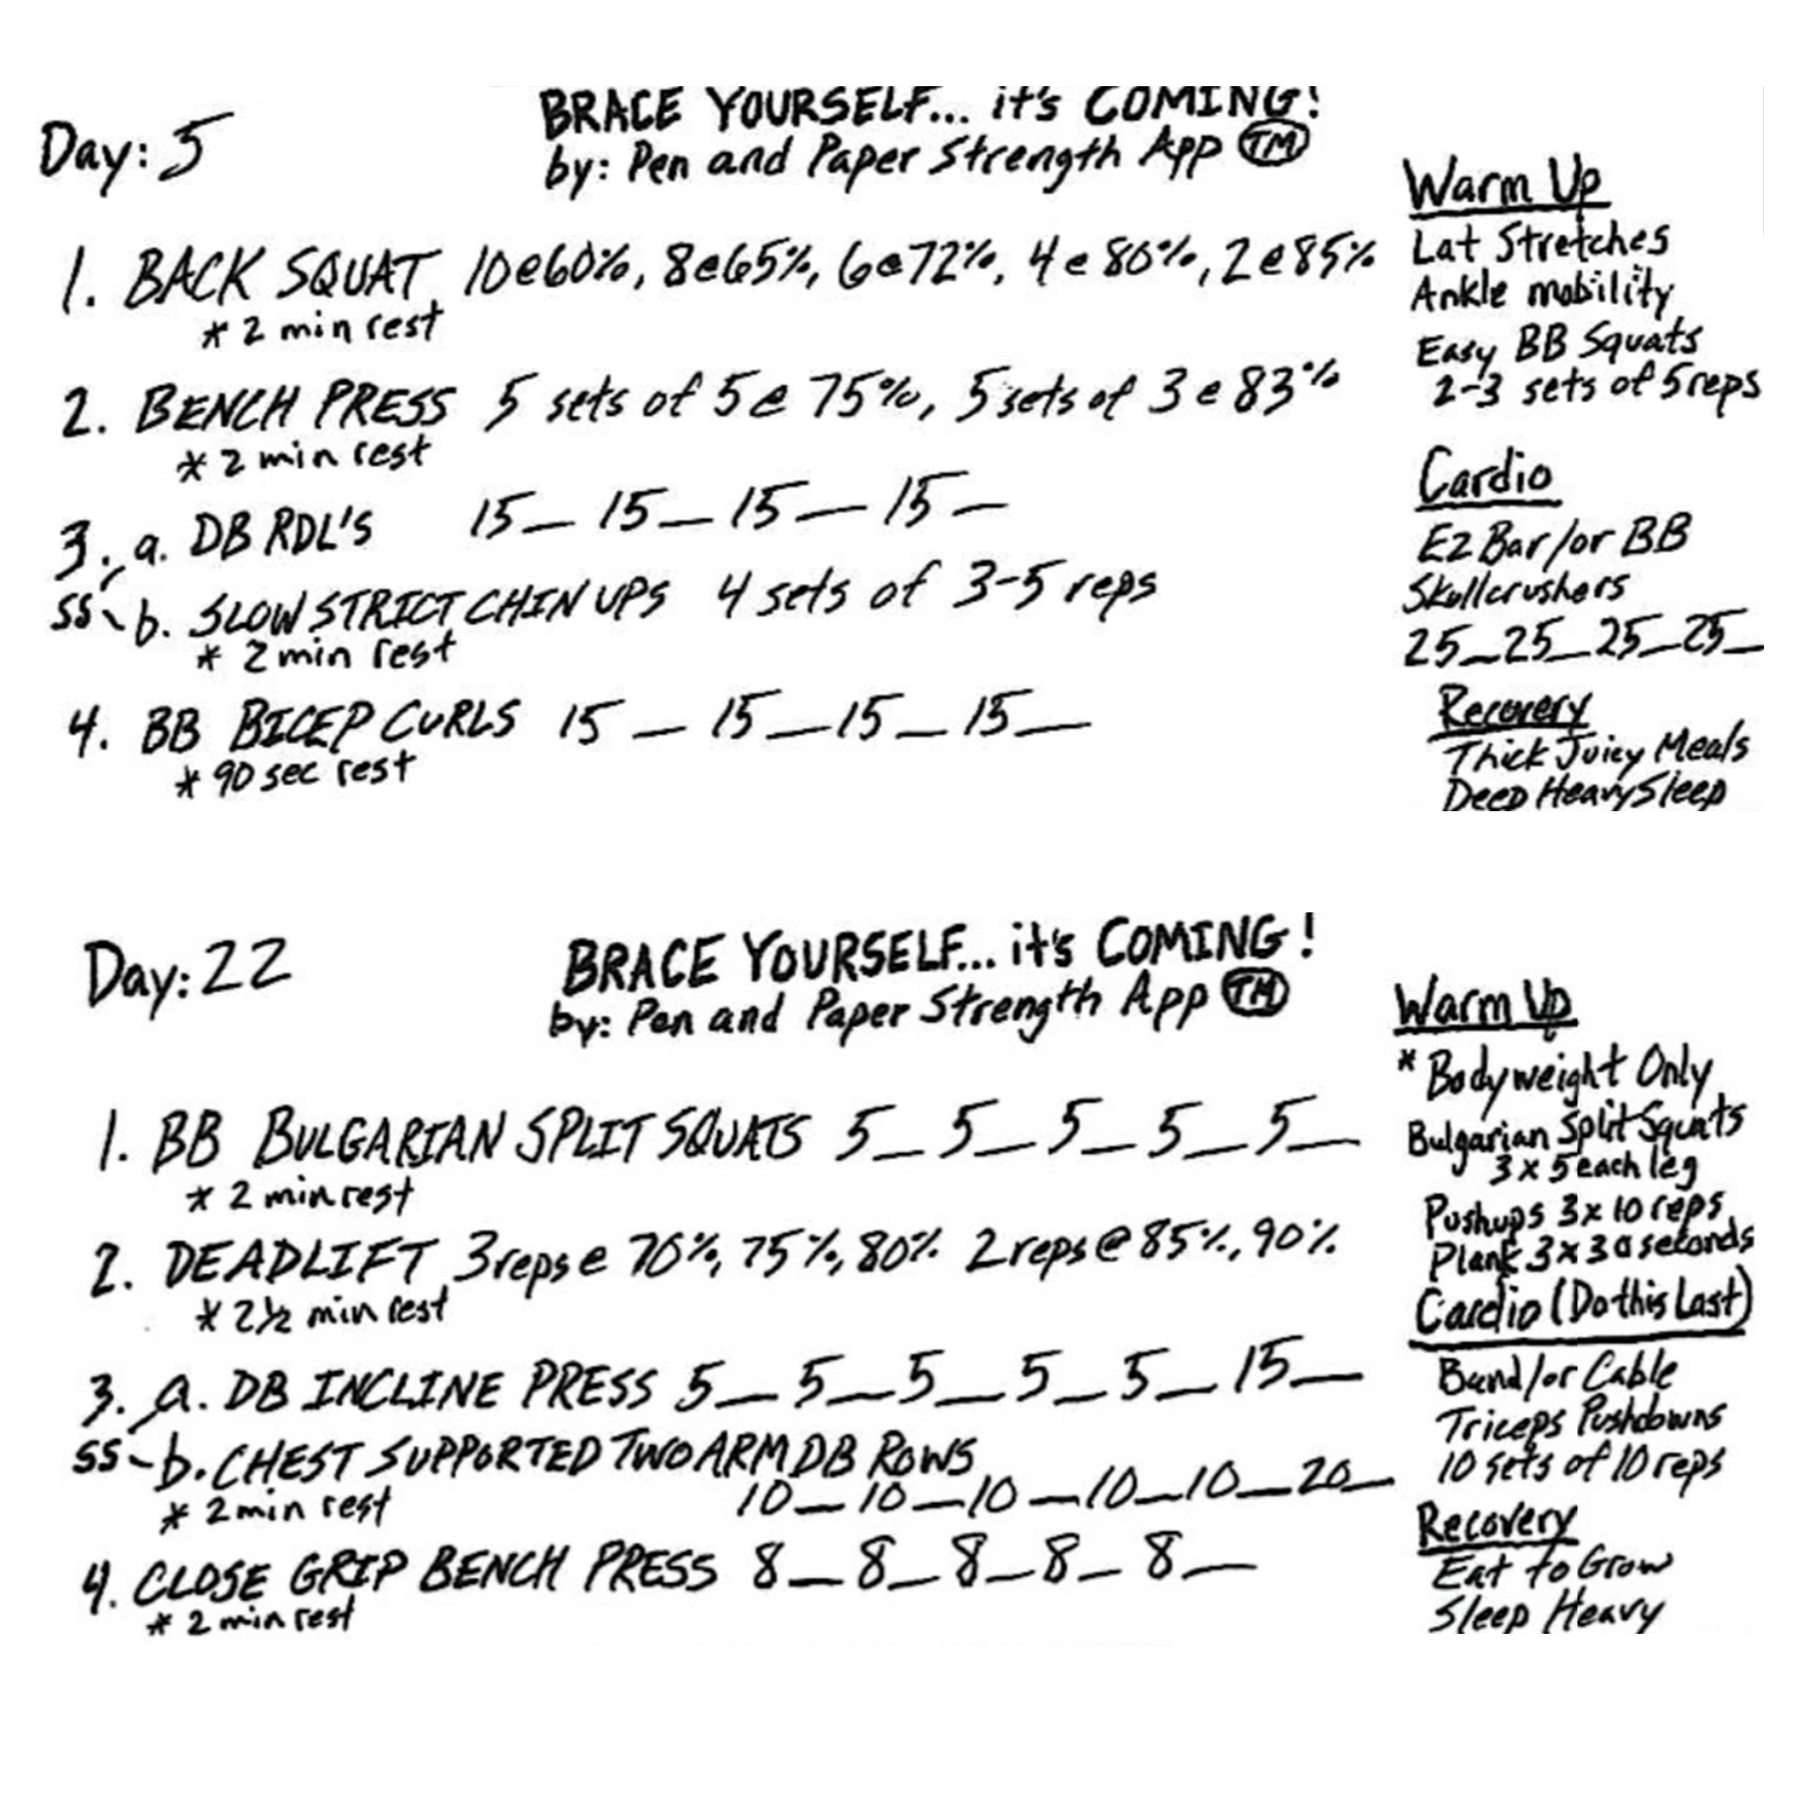 Day: 5
BRACE YOURSELF... it's COMING!
by: Pen and Paper Strength App TM
1. BACK SQUAT 10@60%, 8@65%, 6@72%, 4@80%, 2@85%
* 2 min rest
2. BENCH PRESS 5 sets of 5@75%, 5 sets of 3@83%
* 2 min rest
3. a. DB RDL'S 15_ 15_ 15_ 15_
SS b. SLOW STRICT CHIN UPS 4 sets of 3-5 reps
* 2 min rest
4. BB BICEP CURLS 15_ 15_ 15_ 15_
* 90 sec rest
Warm Up
Lat Stretches
Ankle mobility
Easy BB Squats
2-3 sets of 5 reps
Cardio
EZ Bar/or BB
Skullcrushers
25_25_25_25_
Recovery
Thick Juicy Meals
Deep Heavy Sleep
Day: 22
BRACE YOURSELF... it's COMING!
by: Pen and Paper Strength App TM
1. BB BULGARIAN SPLIT SQUATS 5_ 5_ 5_ 5_ 5_
* 2 min rest
2. DEADLIFT 3 reps @ 70%, 75%, 80% 2 reps @ 85%, 90%
* 2½ min rest
3. a. DB INCLINE PRESS 5_ 5_ 5_ 5_ 5_ 15_
SS b. CHEST SUPPORTED TWO ARM DB ROWS
* 2 min rest 10_ 10_ 10_ 10_ 10_ 20_
4. CLOSE GRIP BENCH PRESS 8_ 8_ 8_ 8_ 8_
* 2 min rest
Warm Up
* Bodyweight Only
Bulgarian Split Squats
3 x 5 each leg
Pushups 3 x 10 reps
Plank 3 x 30 seconds
Cardio (Do this Last)
Band/or Cable
Triceps Pushdowns
10 sets of 10 reps
Recovery
Eat to Grow
Sleep Heavy